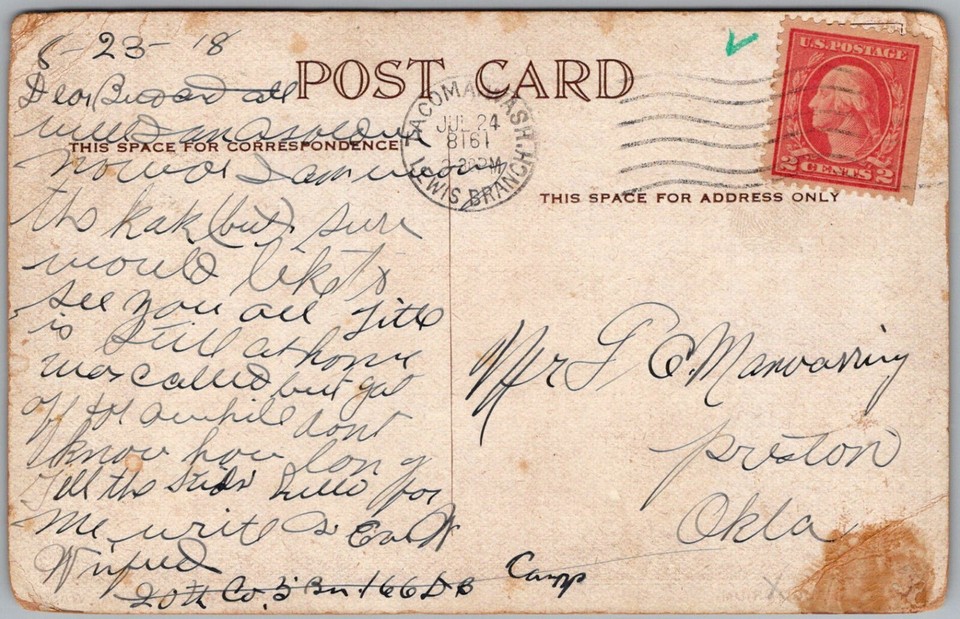 8-23-18
POST CARD
Dear Bud and all
well I am a soldier
THIS SPACE FOR CORRESPONDENCE
now I am
the kak (but) sure
would like to
see you all Tite
is still at home
was called but got
off for awhile dont
know how long
Tell the hello for
me write as Ever
Winfred
20th Co. 5 Bn. 166 DB
Camp
TACOMA, WASH.
JUL 24
LEWIS BRANCH
U.S. POSTAGE
2 CENTS 2
THIS SPACE FOR ADDRESS ONLY
Mr F E. Manwarring
Preston
Okla